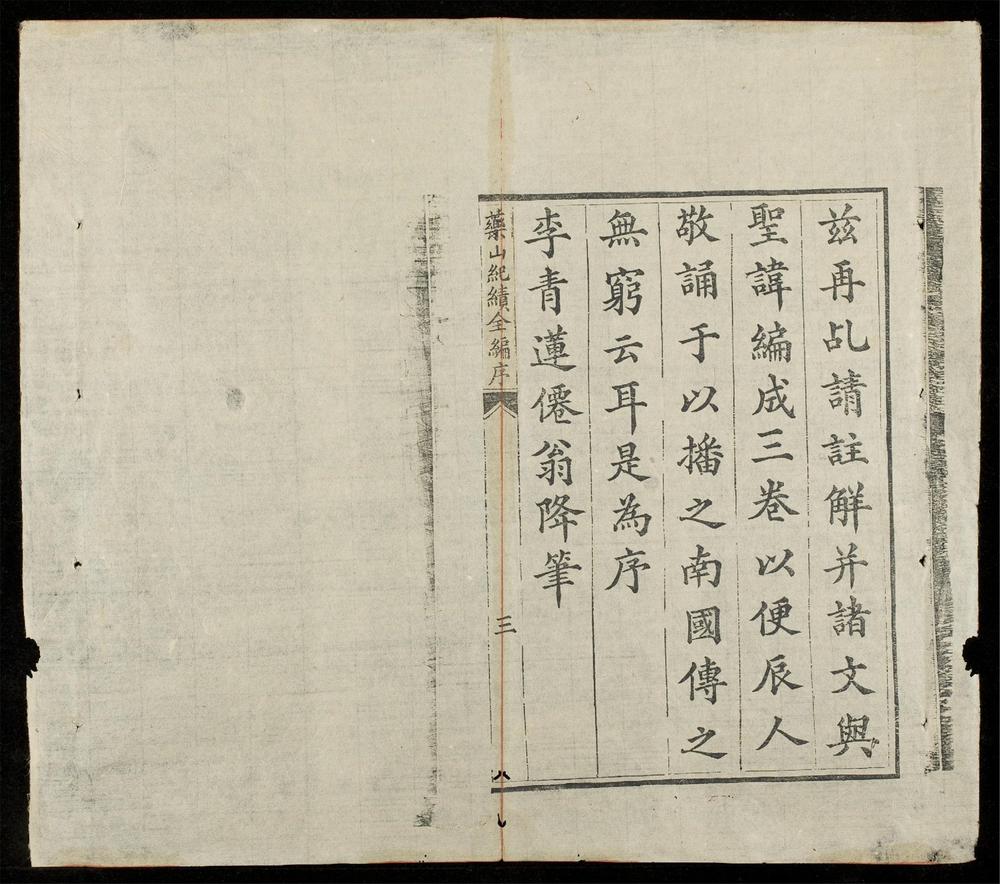 兹再乩請註觧并諸文與
聖諱編成三卷以便辰人
敬誦于以播之南國傳之
無窮云耳是為序
李青蓮僊翁降筆
藥山紀績全編序
三
八